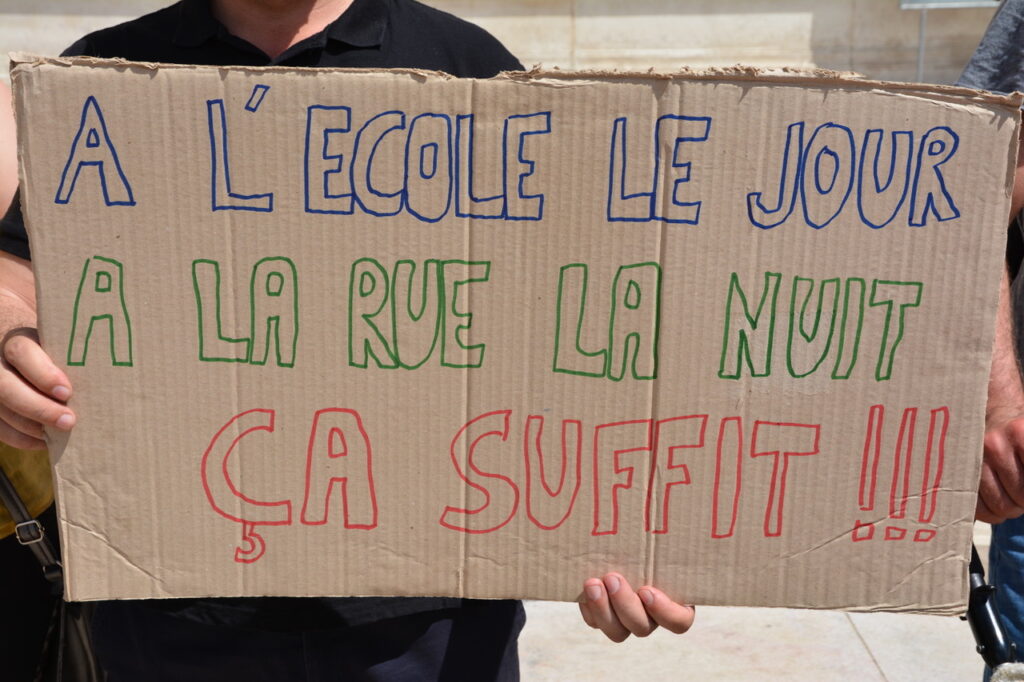 A L'ECOLE LE JOUR
A LA RUE LA NUIT
ÇA SUFFIT !!!